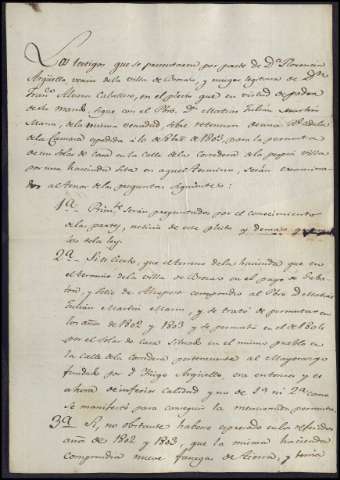 Los testigos que se presentaren por parte de Dª Florencia
Argüello vecina de la villa de Brozas, y muger legitima de Dn
Franco Alvarez Caballero, en el pleito que en virtud de poder
de su marido sigue con el Pbro. Dn Martin Julian Martin
Marin, de la misma vecindad, sobre retencion de una Rl cedula
de la Camara expedida à 10 de de 1803, para la permuta
de un Solar de casa en la Calle de la Corredera de la propia villa
por una hacienda sita en aquel termino, serán examina-
dos al tenor de las preguntas siguientes:
1ª Primte serán preguntados por el conocimiento
de las partes, noticia de este pleito y demas genera-
les de la ley.
2ª Si es cierto, que el terreno de la hacienda que en
el termino de la villa de Brozas en el pago de
y sitio de correspondio al Pbro Dn Martin
Julian Martin Marin, y se trató de permutar en
los años de 1802 y 1803 y se permutó en el de 1804
por el Solar de Casa situado en el mismo pueblo en
la Calle de la Corredera perteneciente al Mayorazgo
fundado por Dn Diego Argüello era entonces y es
ahora de inferior calidad y no de 1ª ni 2ª como
se manifestó para conseguir la mencionada permuta
3ª Si, no obstante haberse expresado en los referidos
años de 1802 y 1803, que la misma hacienda
comprendia nueve fanegas de tierra, y tenia